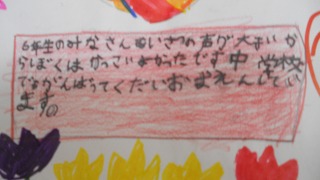 6年生のみなさんあいさつの声が大きいか
らぼくはかっこいよかったです中学校
でもがんばってくだいおおえんしてい
ます。